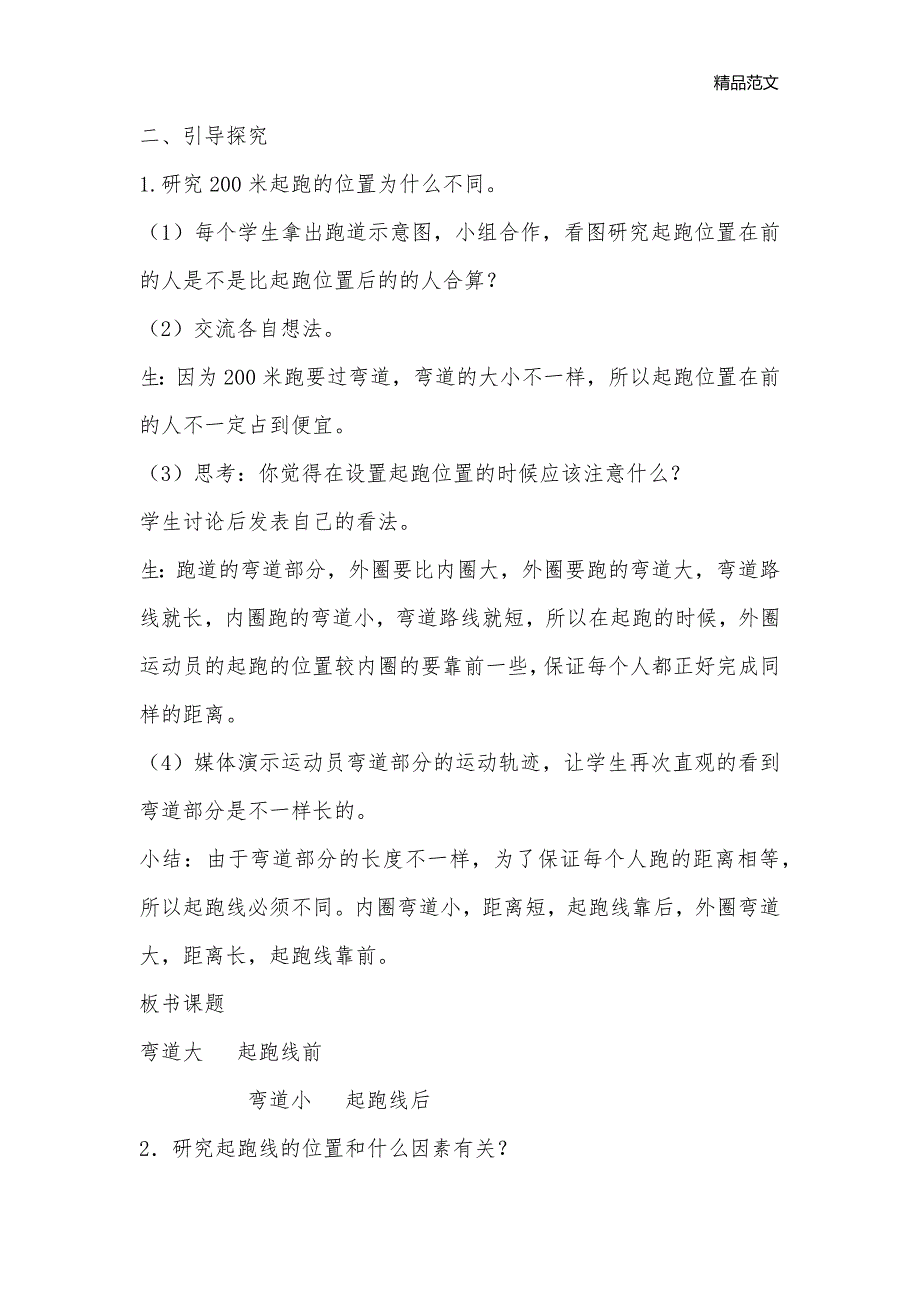 精品范文
二、引导探究
1.研究 200 米起跑的位置为什么不同。
（1）每个学生拿出跑道示意图，小组合作，看图研究起跑位置在前
的人是不是比起跑位置后的的人合算？
（2）交流各自想法。
生：因为 200 米跑要过弯道，弯道的大小不一样，所以起跑位置在前
的人不一定占到便宜。
（3）思考：你觉得在设置起跑位置的时候应该注意什么？
学生讨论后发表自己的看法。
生：跑道的弯道部分，外圈要比内圈大，外圈要跑的弯道大，弯道路
线就长，内圈跑的弯道小，弯道路线就短，所以在起跑的时候，外圈
运动员的起跑的位置较内圈的要靠前一些，保证每个人都正好完成同
样的距离。
（4）媒体演示运动员弯道部分的运动轨迹，让学生再次直观的看到
弯道部分是不一样长的。
小结：由于弯道部分的长度不一样，为了保证每个人跑的距离相等，
所以起跑线必须不同。内圈弯道小，距离短，起跑线靠后，外圈弯道
大，距离长，起跑线靠前。
板书课题
弯道大　起跑线前
弯道小　起跑线后
2．研究起跑线的位置和什么因素有关？